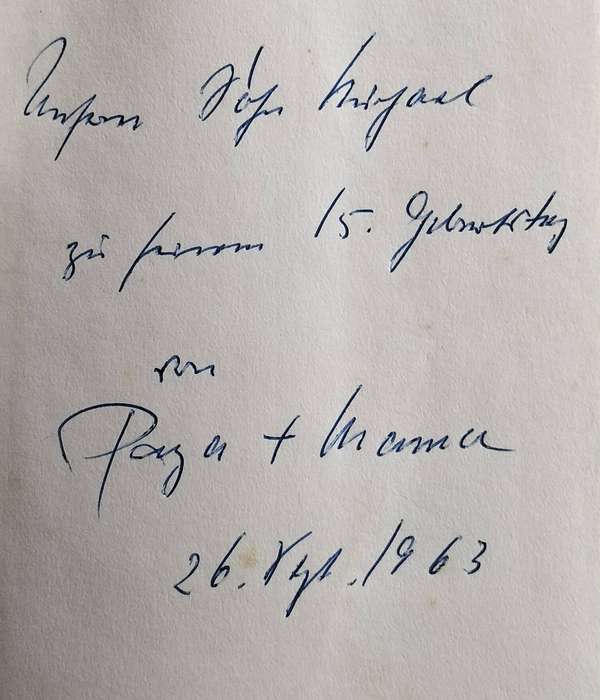 Unserm Sohn Michael
zu seinem 15. Geburtstag
von
Papa + Mama
26. Sept. 1963